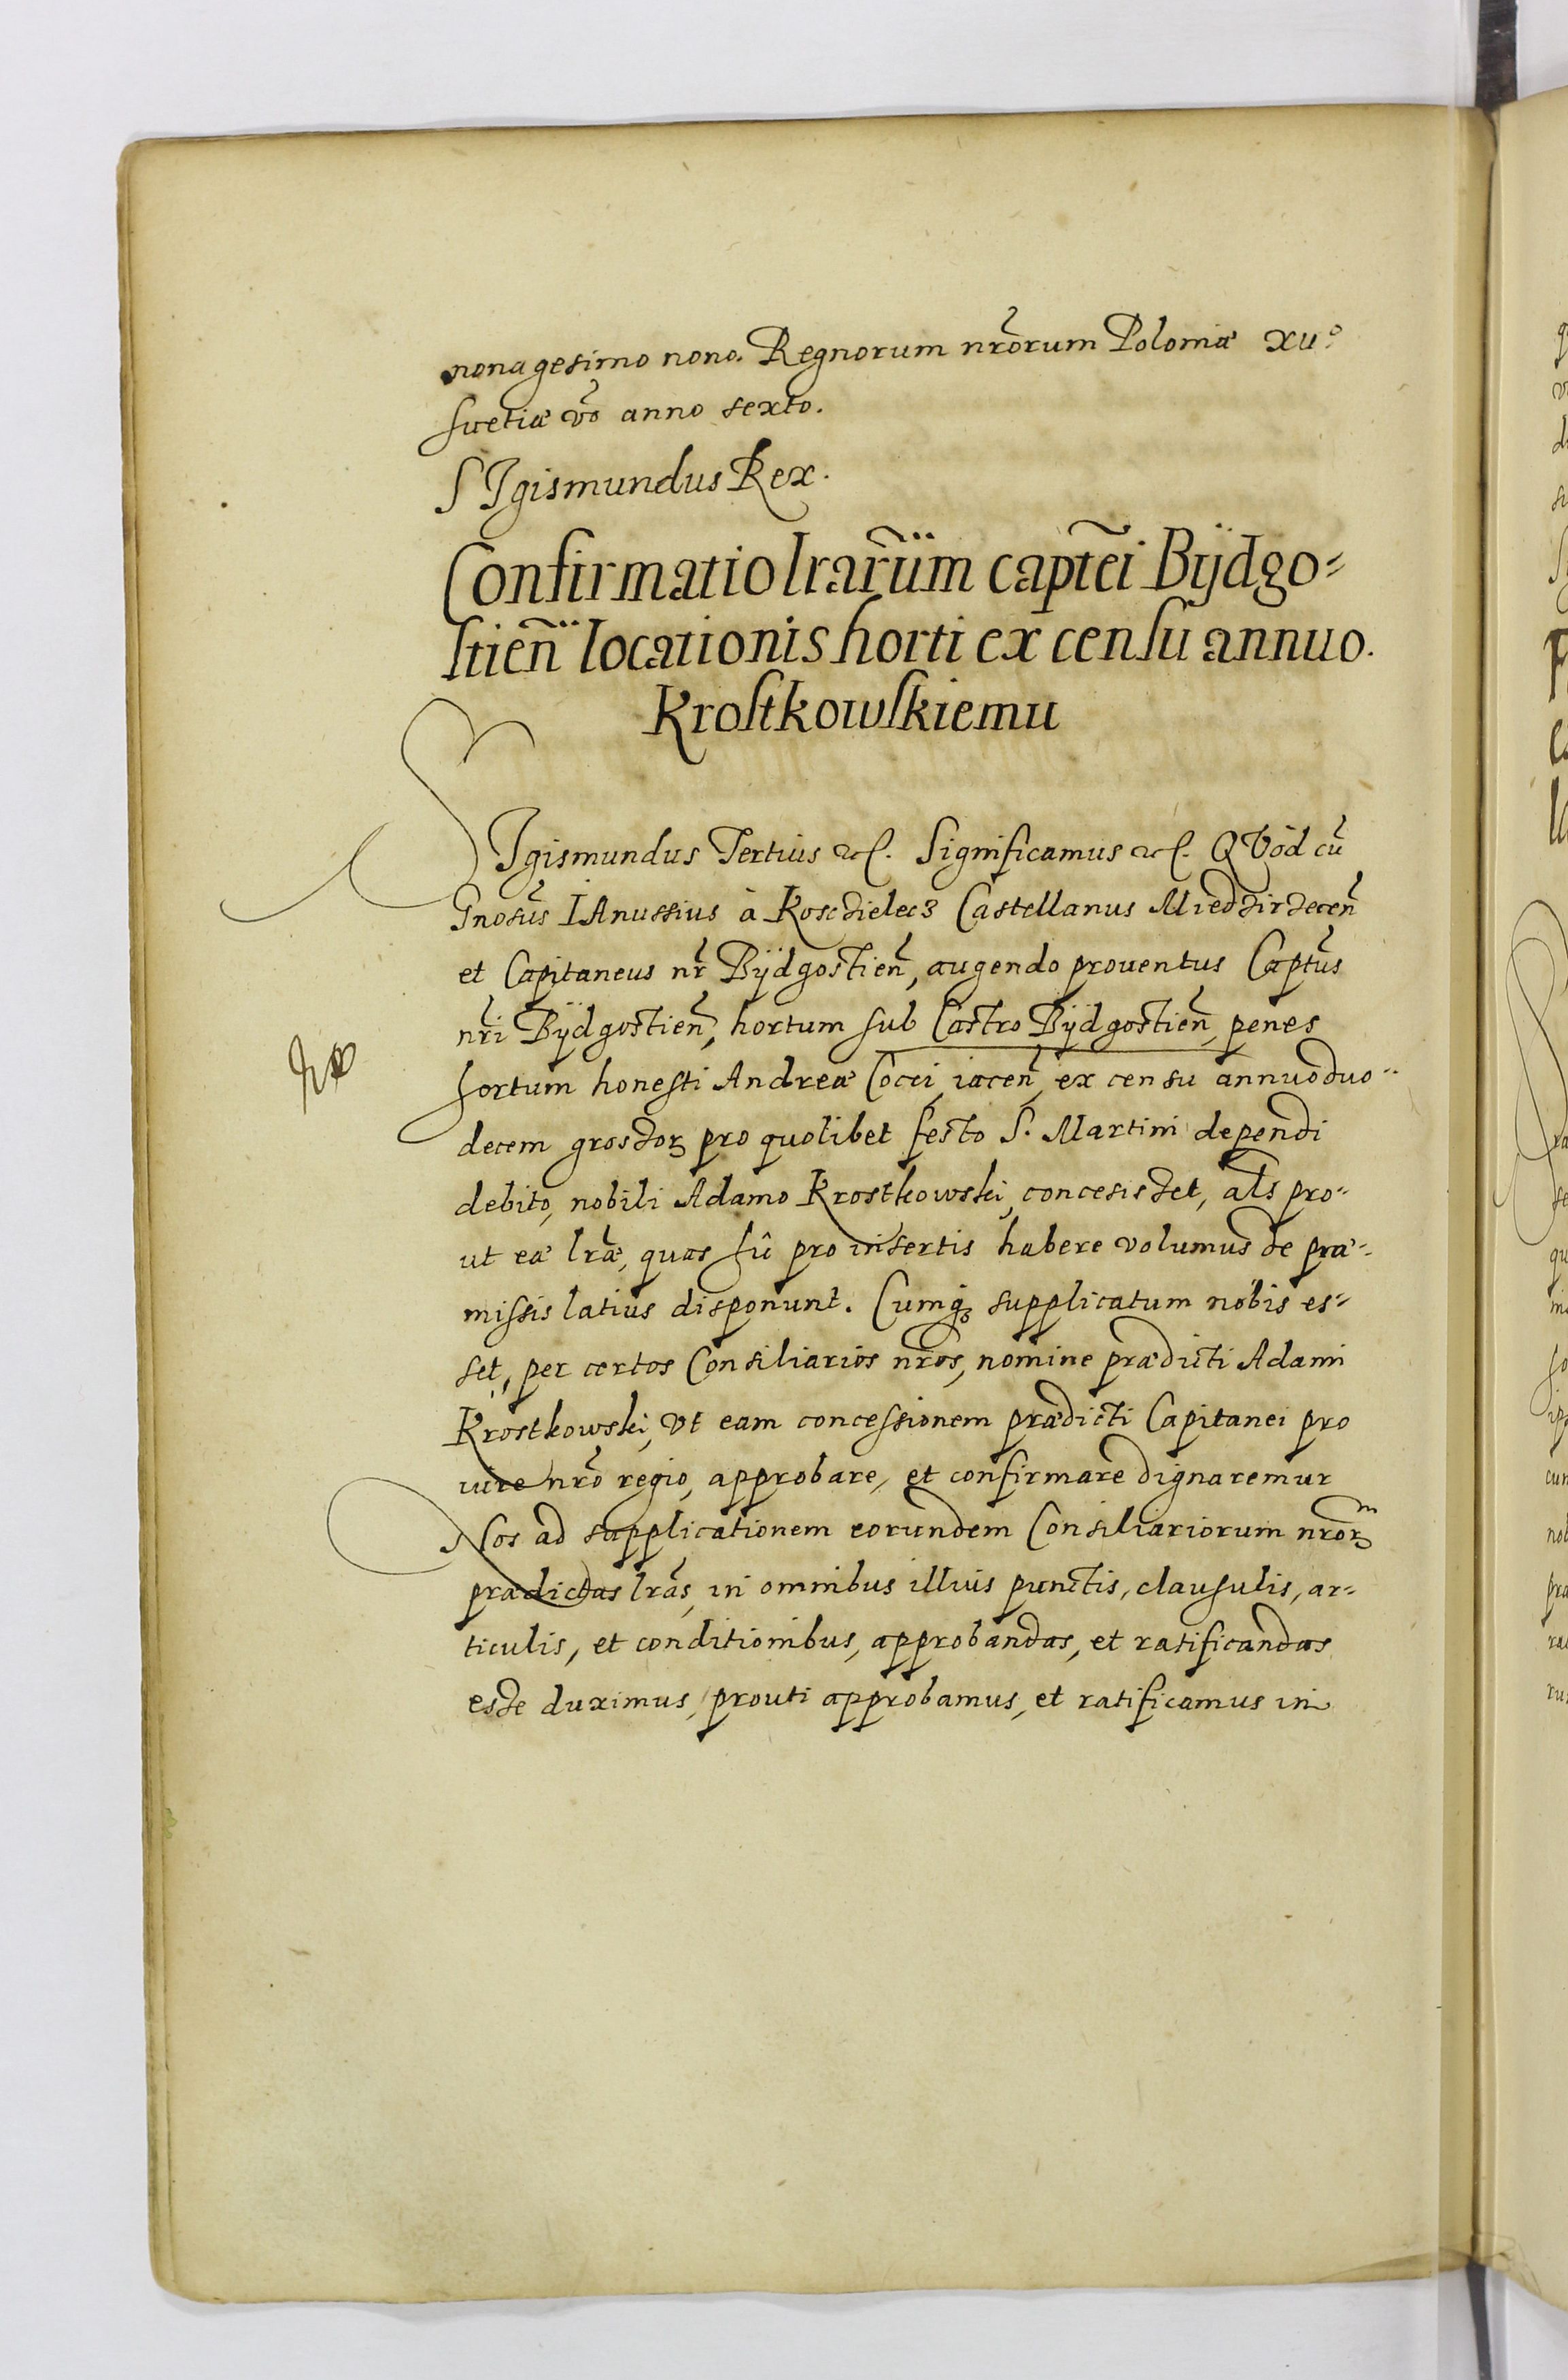 nonagesimo nono. Regnorum nr̃orum Poloniæ xu°
suetiæ võ anno sexto.
SIgismundus Rex.
Confirmatio lrarũm captẽi Bÿdgo=
stieñ locationis horti ex censu annuo.
Krostkowskiemu
SIgismundus Tertius etc. Significamus etc. QVòd cũ
Gnosũs IAnussius à Koscielecz Castellanus Miedzirzeceñ
et Capitaneus nr̃ Bÿdgostieñ, augendo prouentus Captũs
nr̃i Bÿdgostieñ, hortum sub Castro Bÿdgostieñ, penes
hortum honesti Andreæ Coci, iaceñ, ex censu annuo duo=
decem grossoꝝ pro quolibet festo S. Martini dependi
debito, nobili Adamo Krostkowski, concesisset, als pro=
ut eæ lr̃æ, quas hic pro insertis habere volumus de præ=
missis latius disponunt. Cumqꝫ supplicatum nobis es=
set, per certos Consiliarios nr̃os, nomine prædicti Adami
Krostkowski, vt eam concessionem prædicti Capitanei pro
iure nr̃o regio, approbare, et confirmare dignaremur
Nos ad supplicationem eorundem Consiliariorum nr̃orꝝ
prædictas lr̃as, in omnibus illius punctis, clausulis, ar=
ticulis, et conditionibus, approbandas, et ratificandas
esse duximus, prouti approbamus, et ratificamus in